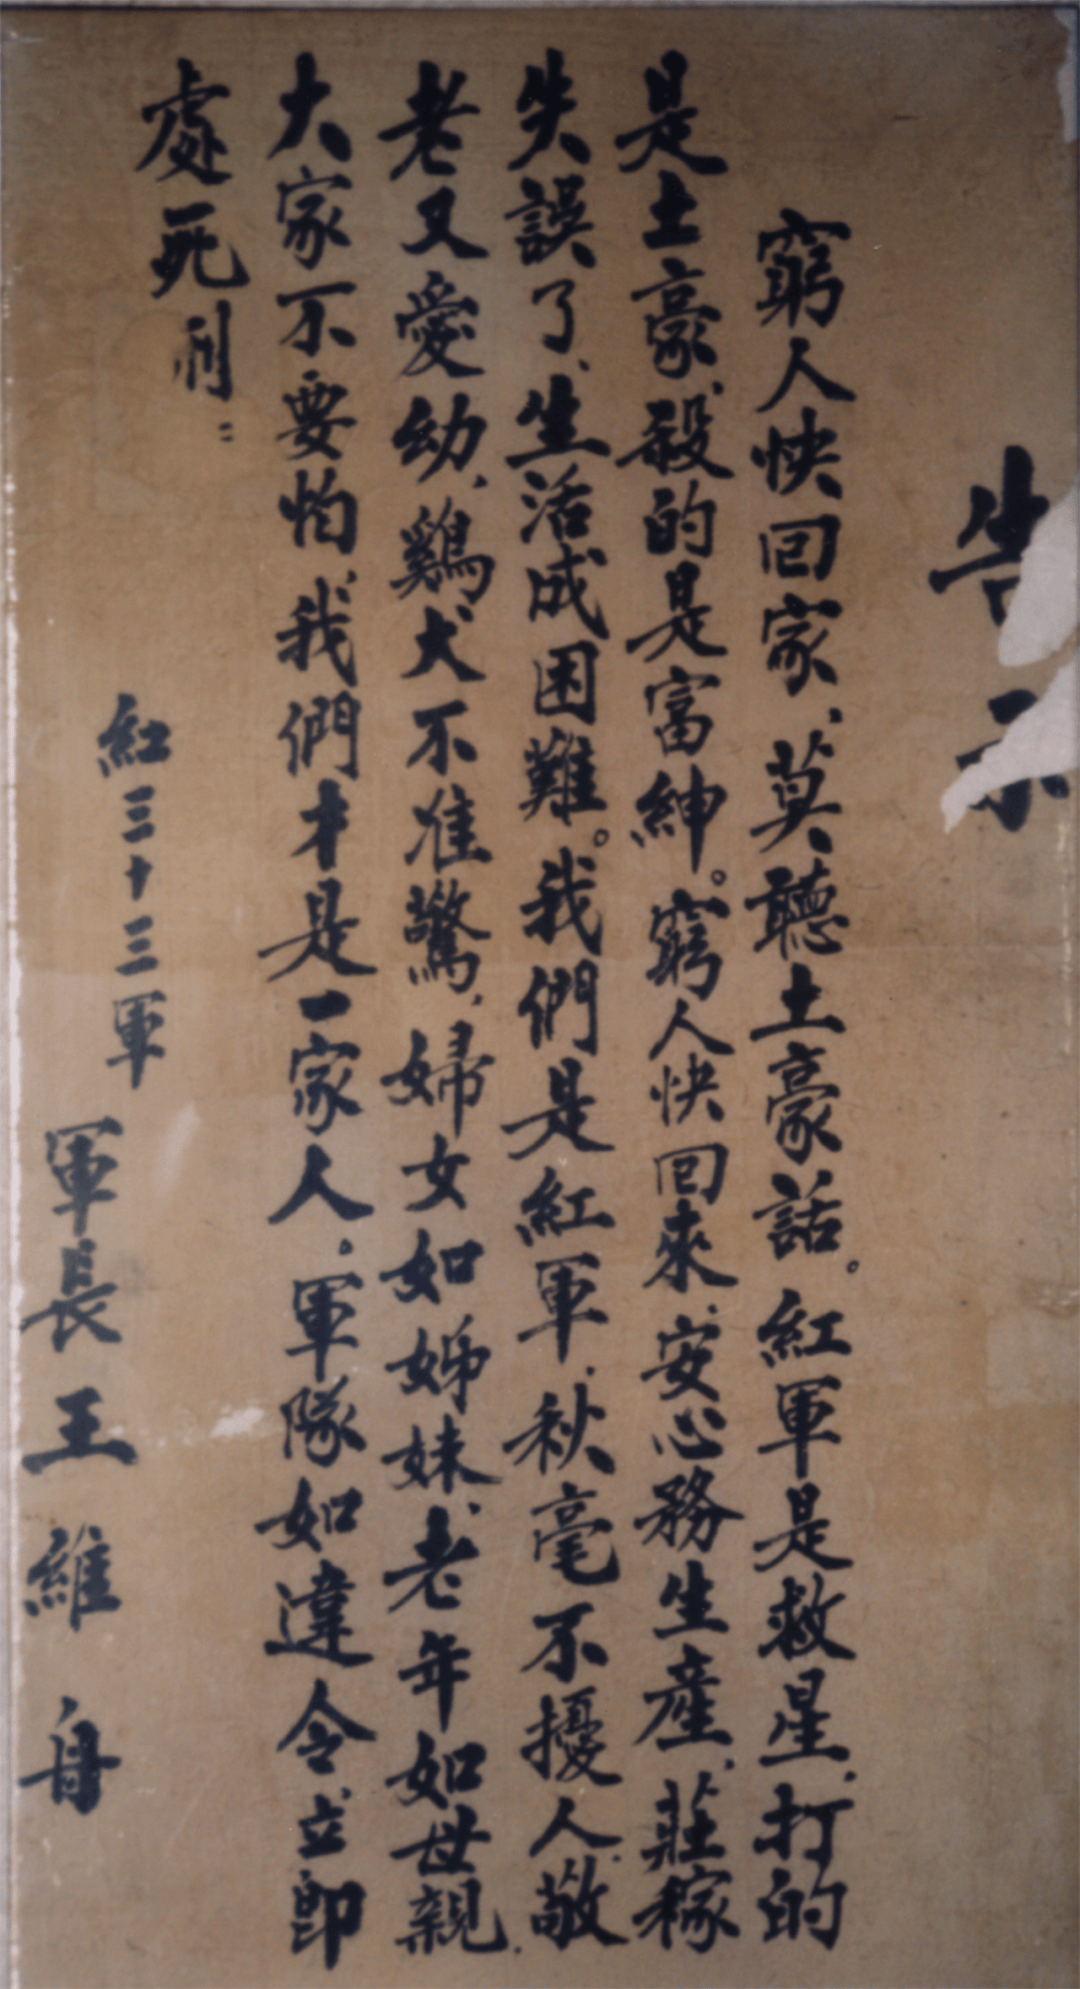 告示
窮人快回家、莫聽土豪話。紅軍是救星、打的
是土豪、殺的是富紳。窮人快回來、安心務生産、莊稼
失誤了、生活成困難。我們是紅軍、秋毫不擾人、敬
老又愛幼、鷄犬不准驚、婦女如姊妹、老年如世親、
大家不要怕、我們才是一家人。軍隊如違令、立即
處死刑：
紅三十三軍
軍長王維舟